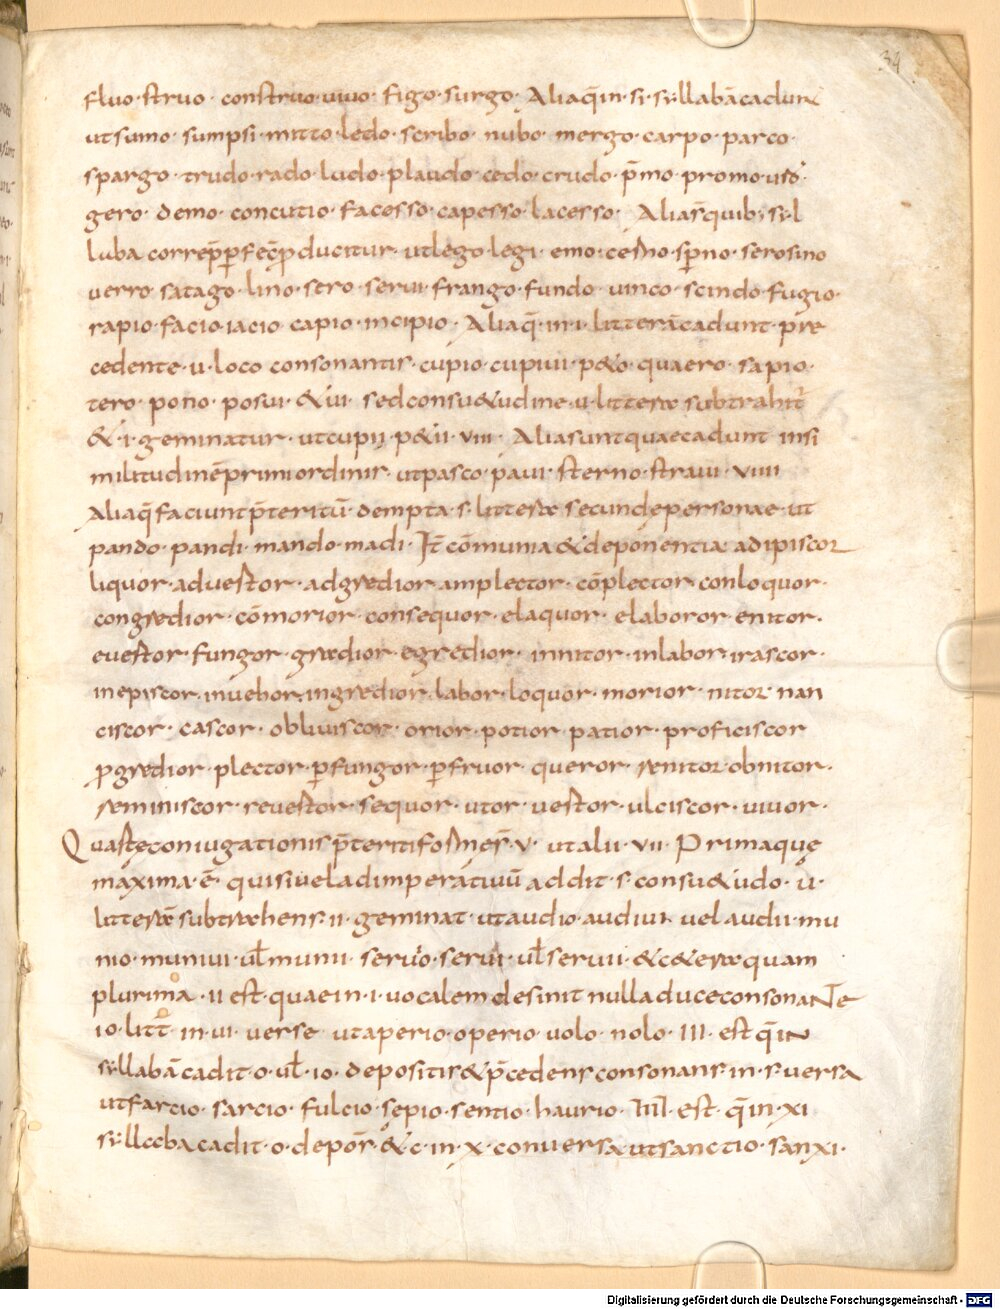 34
fluo · struo · construo · uiuo · figo · surgo · Aliaq̄ in · si · syllabā cadunt
ut sumo · sumpsi · mitto · ledo · scribo · nubo · mergo · carpo · parco ·
spargo · trudo · rado · ludo · plaudo · cedo · crudo · p̄mo · promo · uro ·
gero · demo · concutio · facesso · capesso · lacesso · Alias quib; syl
laba correp̄ perfec̄ producitur · ut lego · legi · emo · cerno · sp̄no · sero sino
uerro · satago · lino · sero · serui · frango · fundo · uinco · scindo · fugio ·
rapio · facio · iacio · capio · incipio · Aliaq̄ · in · i · litterā cadunt · pre
cedente · u · loco consonantis · cupio · cupiui · p&o · quaero · sapio ·
tero · pono · posui · & ui · sed consu&udine · u · littera subtrahit̄
& · i · geminatur · ut cupii · p&ii · viii · Alia sunt quae cadunt insi
militudinē primi ordinis · ut pasco · paui · sterno · straui · viiii
Aliaq̄ faciunt p̄teritū · dempta · s · littera secunde personae · ut
pando · pandi · mando · madi · It̄ cōmunia & deponentia · adipiscor
liquor · aduestor · adgredior amplector · cōplector conloquor ·
congredior · cōmorior · consequor · elaquor · elaboror · enitor ·
euestor · fungor · gredior · egredior · innitor · inlabor · irascor ·
inepiscor · inuehor · ingredior · labor · loquor · morior · nitor · nan
ciscor · cascor · obliuiscor · orior · potior · patior · proficiscor
progredior · plector · perfungor · perfruor · queror · renitor obnitor ·
reminiscor · reuestor · sequor · utor · uestor · ulciscor · uiuor ·
Quaste coniugationis p̄teriti formes̄ · v · ut alii · vii · Primaque
máxima · ē · qui si uel ad imperátiuū addit · s · consu&udo · u ·
litterā subtrahens · ii · geminat · ut audio · audiui · uel audii · mu
nio · muniui · ul̄ munii · seruio · seruiui · ul̄ seruii · & c&era quam
plurima · ii est · quae in · i · uocalem desinit nulla duce consonante
io · litt̄ in · ui · verse · ut aperio · operio · uolo · nolo · III · est q̄ in
syllabā cadit · o · ul̄ · io · depositis & p̄cedens consonans · in · s · uersa
ut farcio · sarcio · fulcio · sepio · sentio · haurio · IIII · est · q̄ in · xi
syllaba cadit · o · depos̄ · & · c · in · x · conuersa ut sanctio · sanxi ·
Digitalisierung gefördert durch die Deutsche Forschungsgemeinschaft - DFG